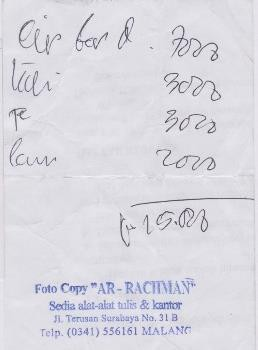 7000
tali 3000
3000
2000
15.000
Foto Copy "AR - RACHMAN"
Sedia alat-alat tulis & kantor
Jl. Terusan Surabaya No. 31 B
Telp. (0341) 556161 MALANG